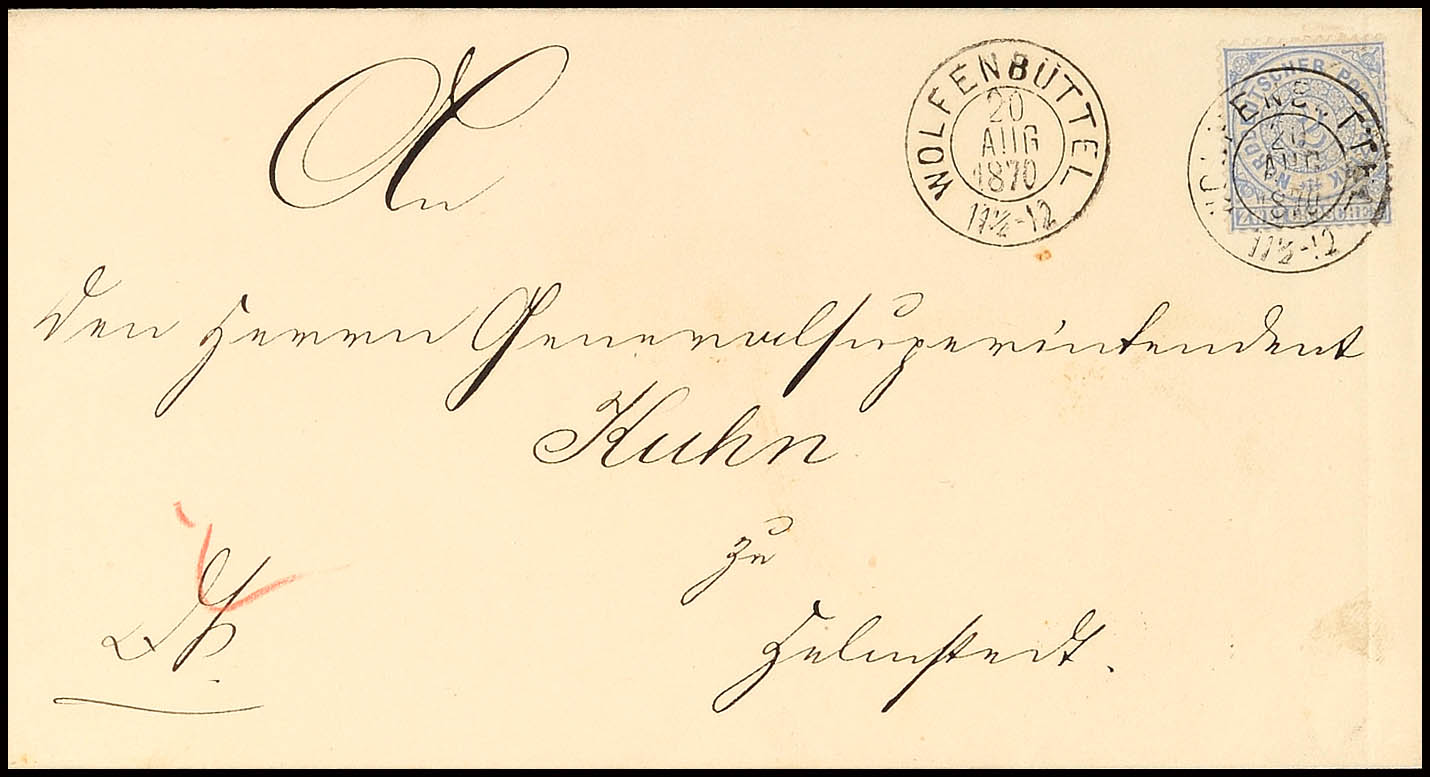 An
WOLFENBÜTTEL
20
AUG
1870
11½-12
NORDDEUTSCHER POST
20
AUG
1870
11½-12
den Herrn Generalsuperintendent
Kuhn
zu
Helmstedt.